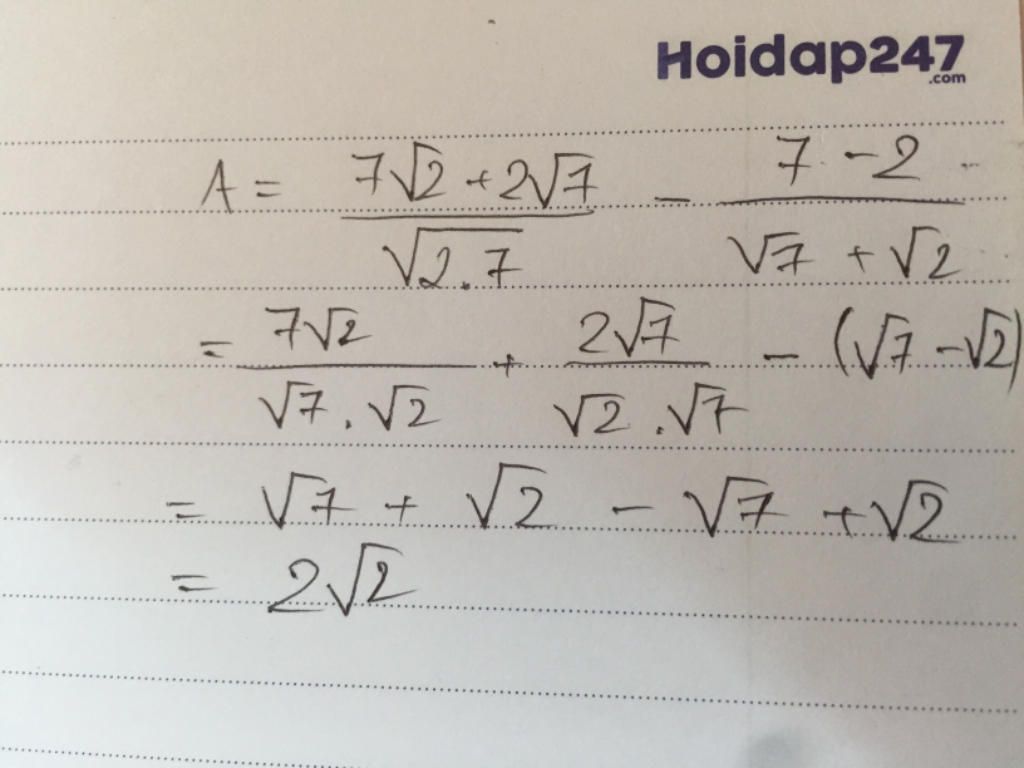 Hoidap247
.com
A = \frac{7\sqrt{2} + 2\sqrt{7}}{\sqrt{2.7}} - \frac{7 - 2}{\sqrt{7} + \sqrt{2}}
= \frac{7\sqrt{2}}{\sqrt{7} . \sqrt{2}} + \frac{2\sqrt{7}}{\sqrt{2} . \sqrt{7}} - (\sqrt{7} - \sqrt{2})
= \sqrt{7} + \sqrt{2} - \sqrt{7} + \sqrt{2}
= 2\sqrt{2}